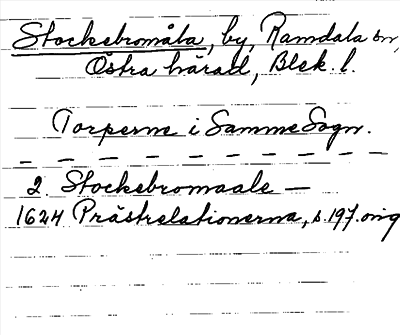 Stockebromåla, by, Ramdala sn,
Östra härad, Blek. l.
Torperne i Samme Sogn.
2. Stockebromaale —
1624 Prästrelationerna, s. 197. orig